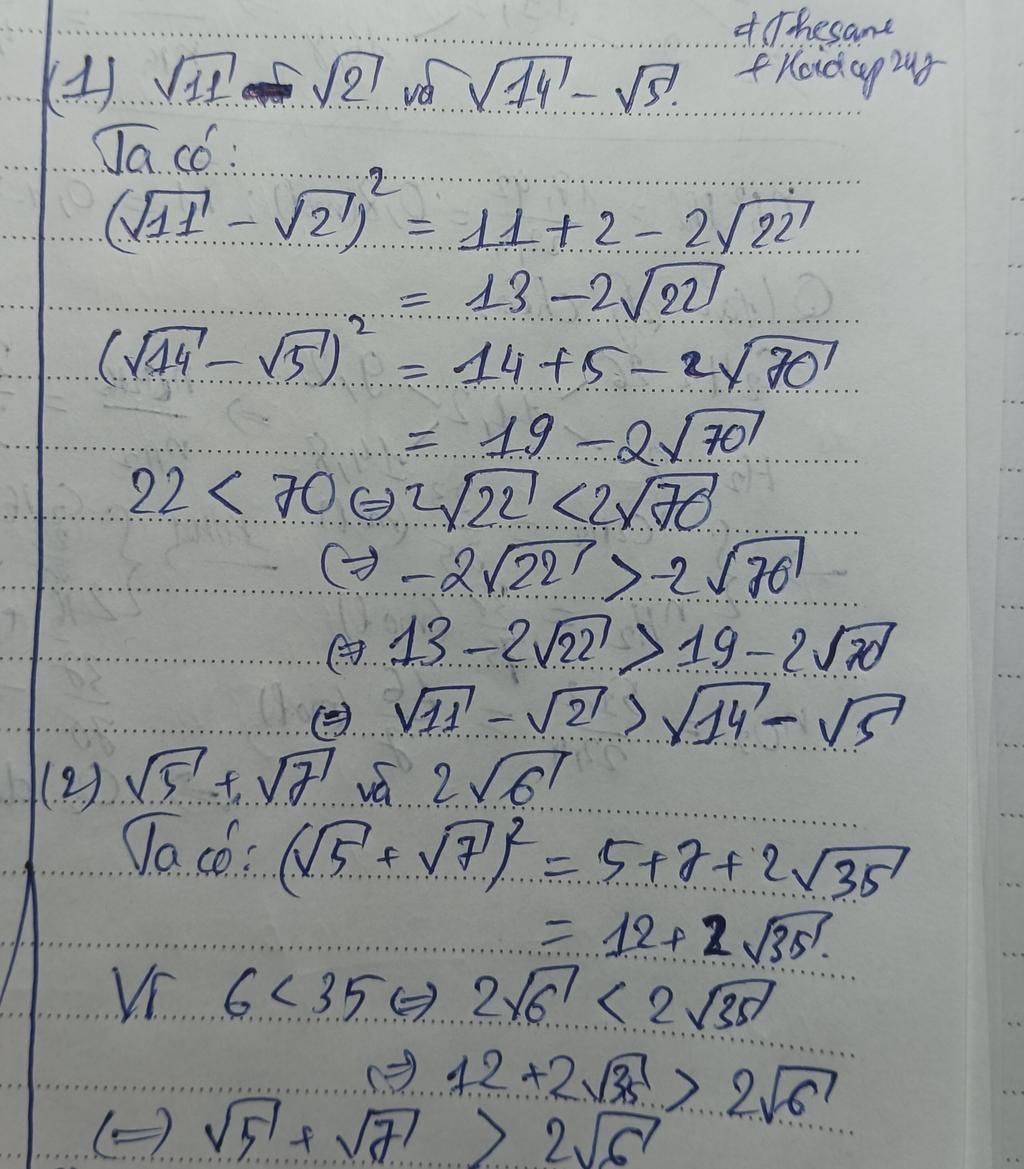 + Thesane
+ Hoidap247
(1) √11 - √2 và √14 - √5.
Ta có:
(√11 - √2)² = 11 + 2 - 2√22
= 13 - 2√22
(√14 - √5)² = 14 + 5 - 2√70
= 19 - 2√70
22 < 70 ⇔ 2√22 < 2√70
⇔ -2√22 > -2√70
⇔ 13 - 2√22 > 19 - 2√70
⇔ √11 - √2 > √14 - √5
(2) √5 + √7 và 2√6
Ta có: (√5 + √7)² = 5 + 7 + 2√35
= 12 + 2√35.
Vì 6 < 35 ⇔ 2√6 < 2√35
⇔ 12 + 2√35 > 2√6
⇔ √5 + √7 > 2√6